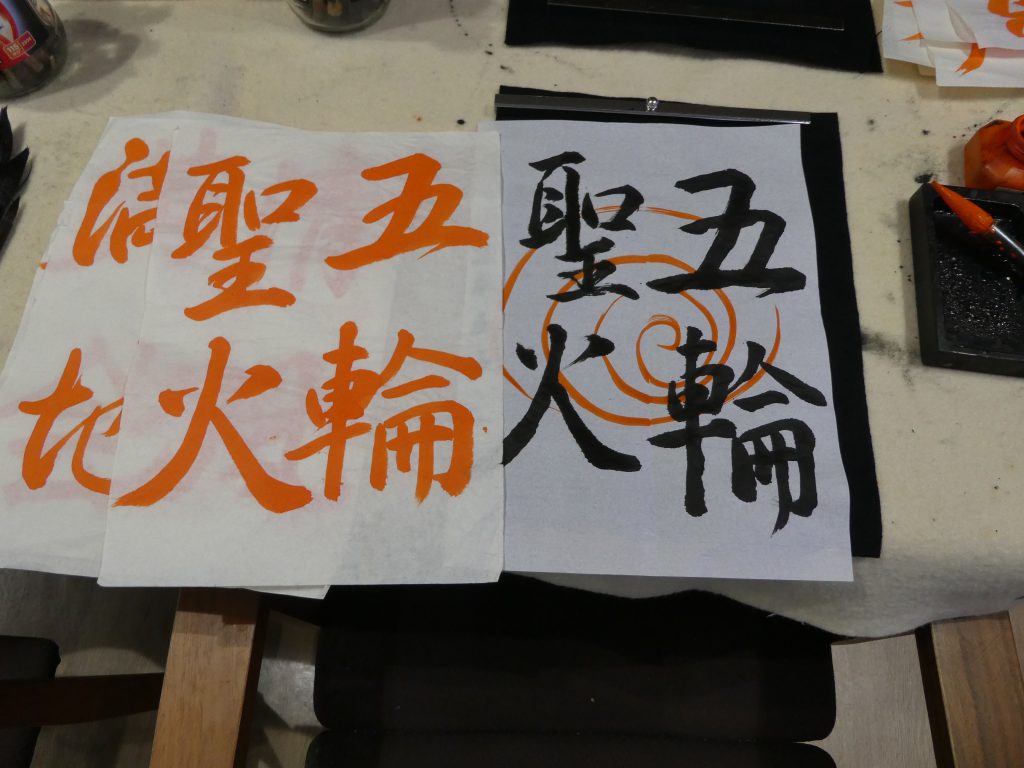 五輪
聖火
五輪
聖火